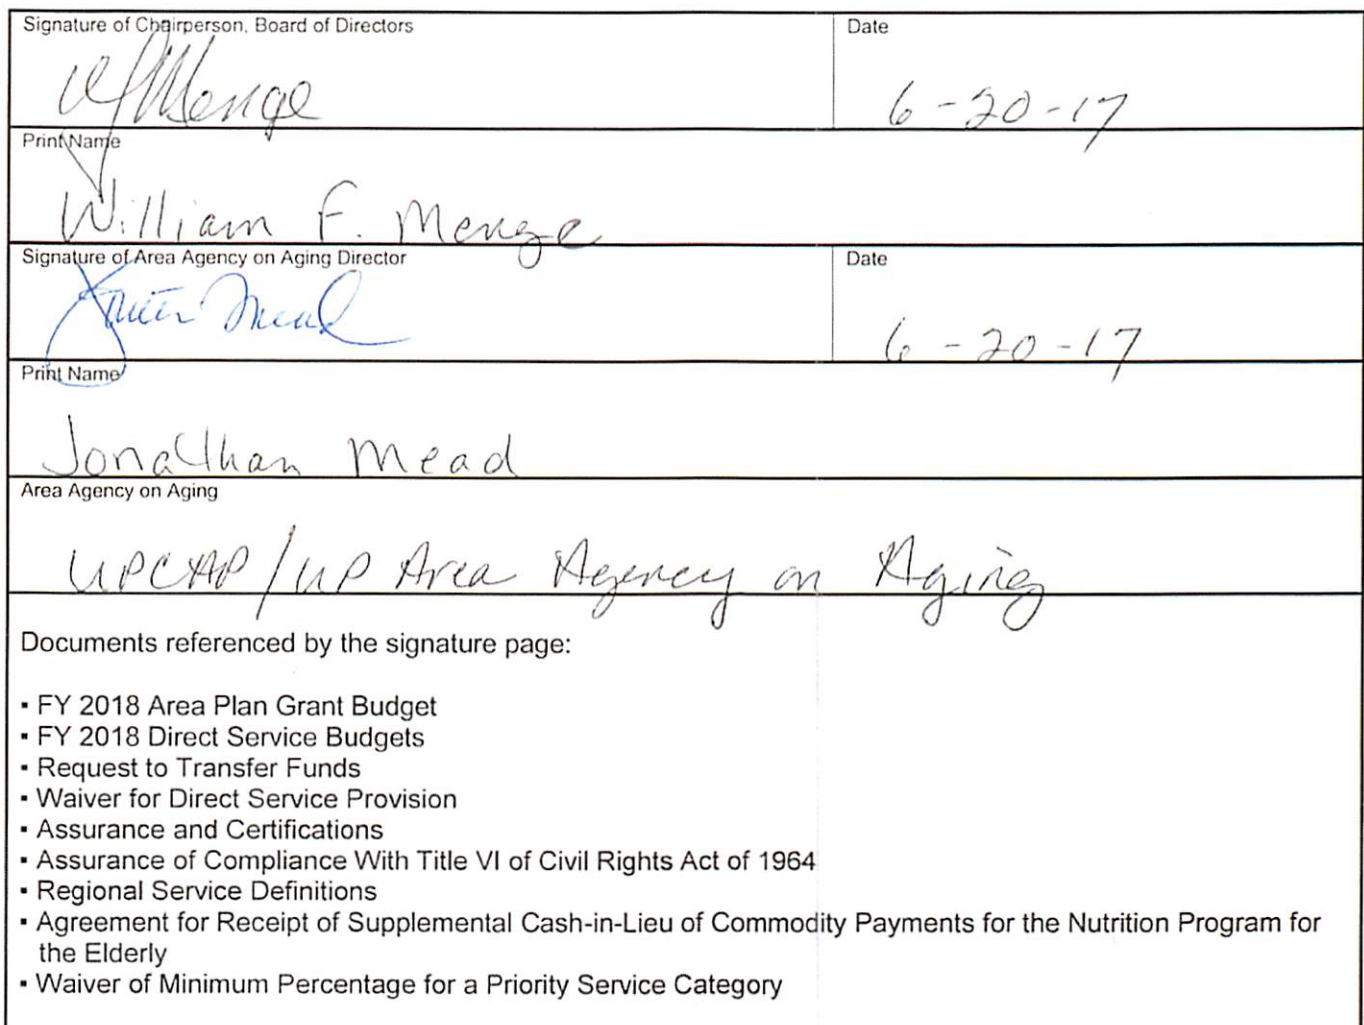 Signature of Chairperson, Board of Directors
Date
WFMenge
6-20-17
Print Name
William F. Menge
Signature of Area Agency on Aging Director
Date
Mead
6-20-17
Print Name
Jonathan Mead
Area Agency on Aging
UPCAP/UP Area Agency on Aging
Documents referenced by the signature page:
▪ FY 2018 Area Plan Grant Budget
▪ FY 2018 Direct Service Budgets
▪ Request to Transfer Funds
▪ Waiver for Direct Service Provision
▪ Assurance and Certifications
▪ Assurance of Compliance With Title VI of Civil Rights Act of 1964
▪ Regional Service Definitions
▪ Agreement for Receipt of Supplemental Cash-in-Lieu of Commodity Payments for the Nutrition Program for
the Elderly
▪ Waiver of Minimum Percentage for a Priority Service Category